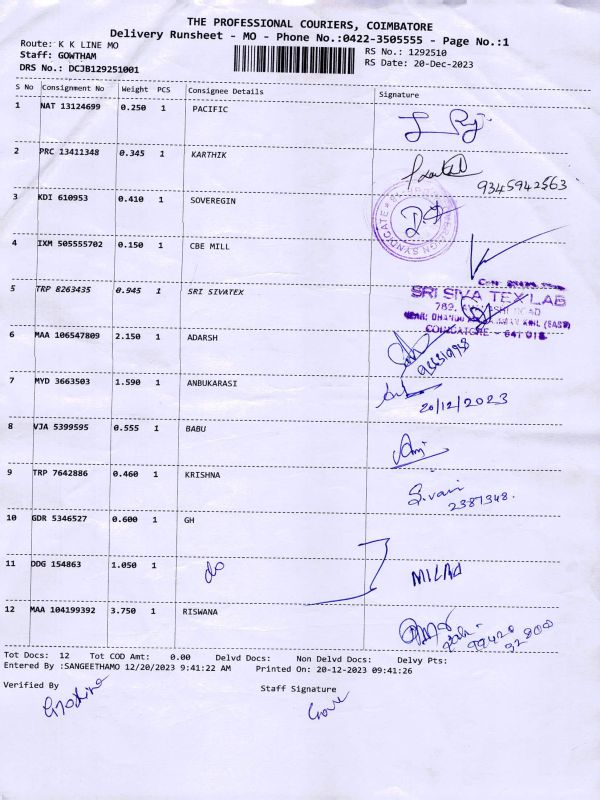 THE PROFESSIONAL COURIERS, COIMBATORE
Delivery Runsheet - MO - Phone No.:0422-3505555 - Page No.:1
Route: K K LINE MO
RS No.: 1292510
Staff: GOWTHAM
RS Date: 20-Dec-2023
DRS No.: DCJB129251001
S No Consignment No Weight PCS Consignee Details Signature
1 NAT 13124699 0.250 1 PACIFIC
2 PRC 13411348 0.345 1 KARTHIK
9345942563
3 KDI 610953 0.410 1 SOVEREGIN
SYNDICATE
4 IXM 505555702 0.150 1 CBE MILL
5 TRP 8263435 0.945 1 SRI SIVATEX
SRI SIVA TEX LAB
COIMBATORE - 641 018
6 MAA 106547809 2.150 1 ADARSH
7 MYD 3663503 1.590 1 ANBUKARASI
20/12/2023
8 VJA 5399595 0.555 1 BABU
9 TRP 7642886 0.460 1 KRISHNA
S.vani
2387348.
10 GDR 5346527 0.600 1 GH
11 DDG 154863 1.050 1 do
12 MAA 104199392 3.750 1 RISWANA
99420
32800
Tot Docs: 12 Tot COD Amt: 0.00 Delvd Docs: Non Delvd Docs: Delvy Pts:
Entered By :SANGEETHAMO 12/20/2023 9:41:22 AM Printed On: 20-12-2023 09:41:26
Verified By
Staff Signature